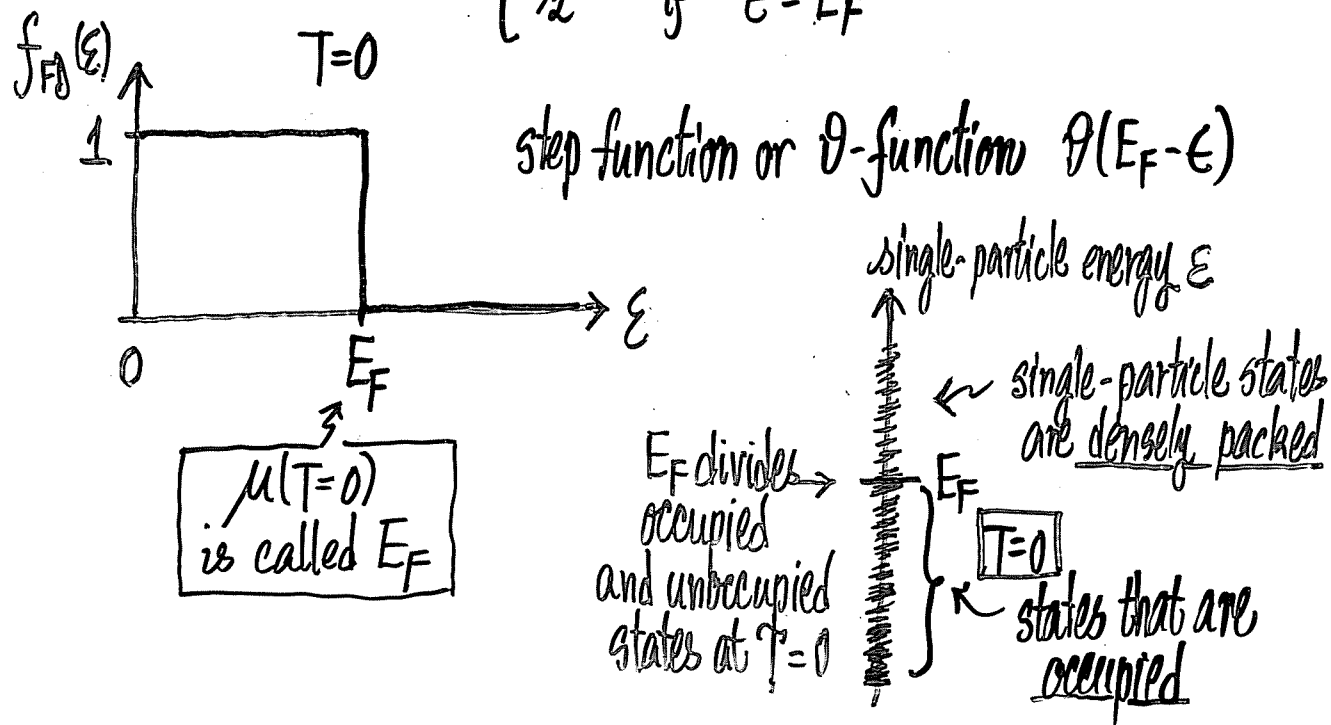 1/2 if ε = E_F
f_FD(ε)
T=0
1
step function or θ-function θ(E_F-ε)
0
E_F
ε
μ(T=0)
is called E_F
single-particle energy ε
single-particle states
are densely packed
E_F divides
occupied
and unoccupied
states at T=0
E_F
T=0
states that are
occupied